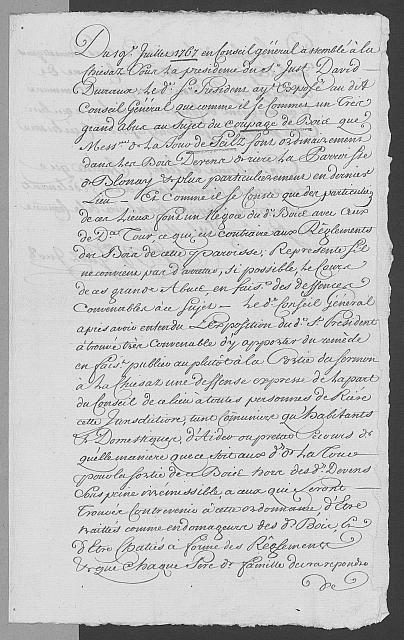 Du 19e Juillet 1767 en Conseil général assemblé à la
Chesaz sous la presidence du Sr Just David
Ducraux, Led. Sr President ayt Exposé aud.t
Conseil Général que comme il se Commet un Tres
grand abus au Sujet du Coupage de Bois que
Mess.rs de La Tour de Peilz font ordinairement
dans Les Bois Devens de rière La Parroisse
de Blonay & plus particulierement en dernier
Lieu — Et Comme il se Conste que des particuliers
de ces Lieux font un Negoce dud. Bois avec Ceux
de D.e Tour, ce qui est contraire aux Reglements
des Bois de cette Parroisse, Represente s'il
ne convient pas d'arreter, si possible, le Cours
de ces grands Abus en fais.t des deffences
Convenables à ce Sujet — Led. Conseil Général
après avoir entendu L'Exposition du d. Sr President
à trouvé très Convenable d'y apporter du remede
en fais.t publier au plutôt à la Sortie du sermon
à La Chesaz une deffense expresse de la part
du Conseil de ce lieu à toutes personnes de Rière
cette Jurisdiction, tant Comuniers qu'Habitants
& Domestiques, d'Aider ou preter secours de
quelle maniere que ce soit aux d. de La Tour
pour la sortie de ce Bois hors des d. Devens
sous peine irremissible à ceux qui Seront
Trouvés Contrevenir à cette ordonnance, d'Etre
traittés comme endomageurs des d. Bois &
d'Etre Chatiés à forme des Règlements
& que Chaque Pere de famille devra repondre
de